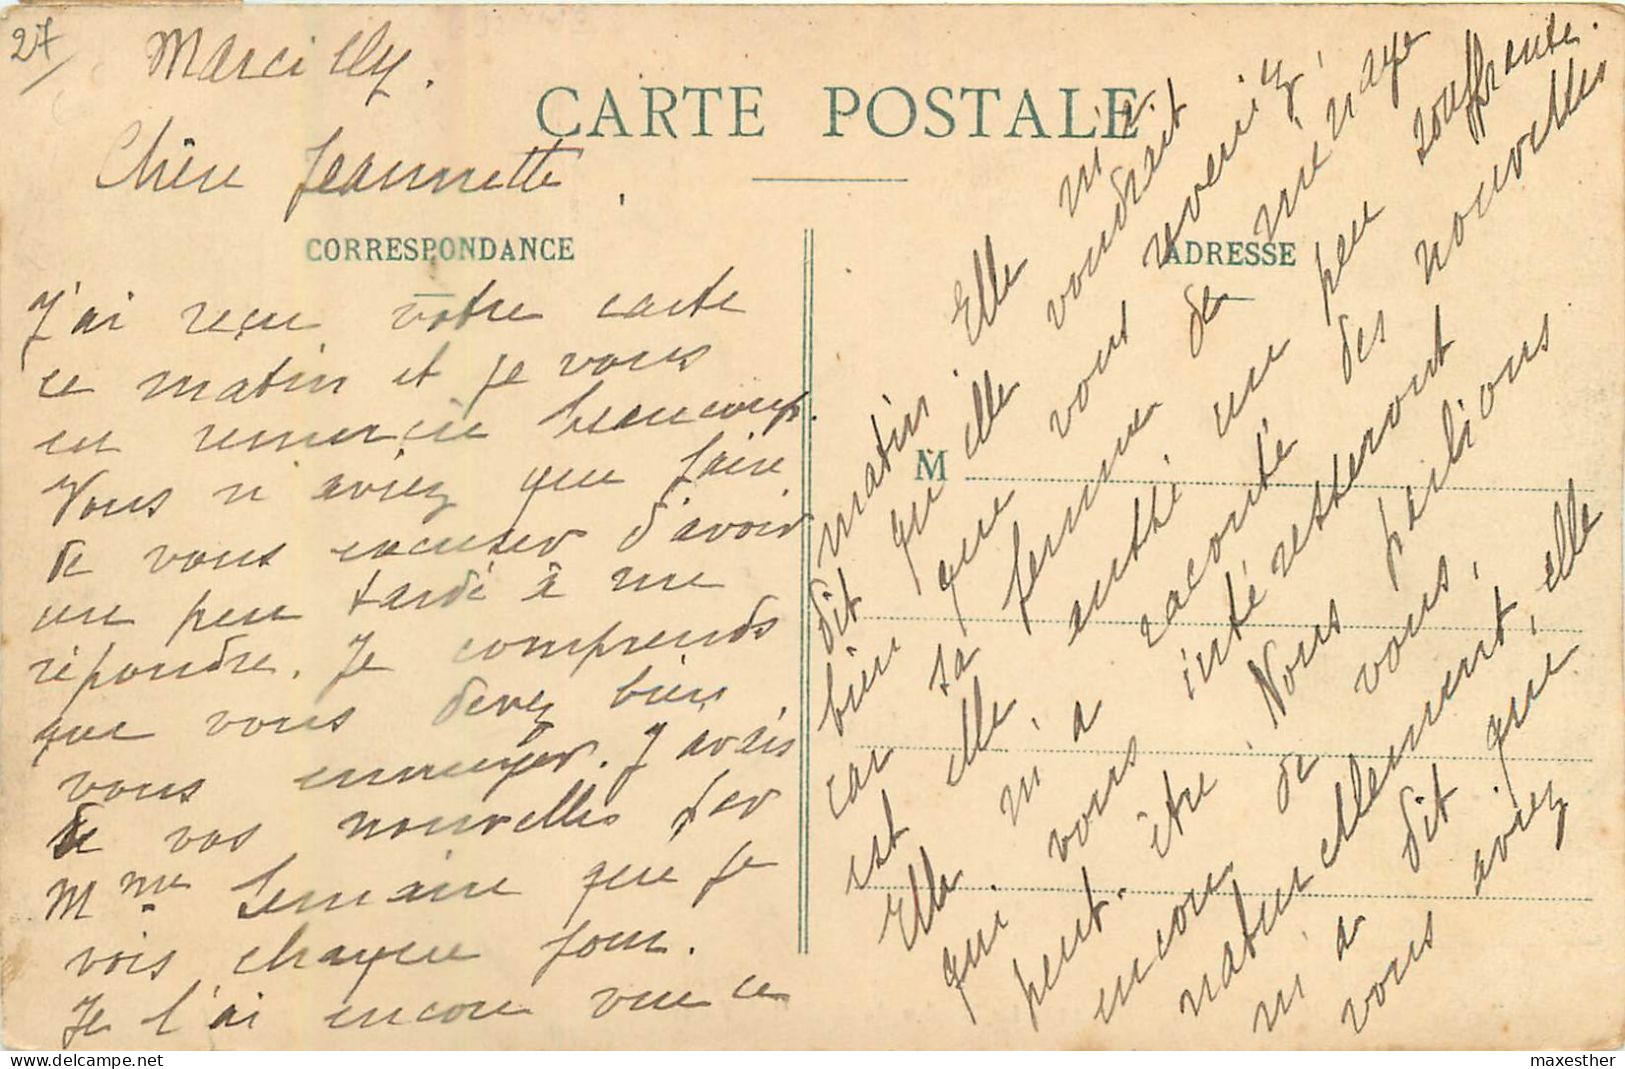 27
Marcilly.
CARTE POSTALE
Chère Jeannette,
CORRESPONDANCE
J'ai reçu votre carte
ce matin et je vous
en remercie beaucoup.
Vous n'aviez que faire
de vous excuser d'avoir
un peu tardé à me
répondre. Je comprends
que vous devez bien
vous ennuyer. J'avais
de vos nouvelles par
Mme Lemaire que je
vois chaque jour.
Je l'ai encore vue ce
ADRESSE
M
matin Elle m'a
dit qu'elle voudrait
bien que vous reveniez,
car sa femme de ménage
est elle aussi un peu souffrante.
Elle m'a raconté des nouvelles
qui vous intéresseront
peut-être. Nous parlions
encore de vous,
naturellement, elle
m'a dit que
vous aviez
maxesther